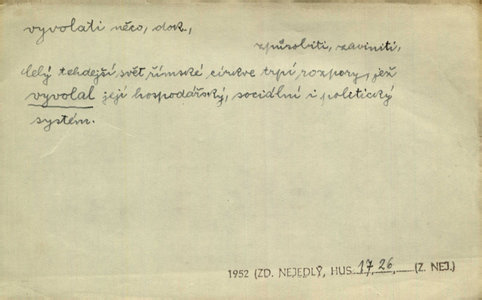 vyvolati něco, dok.,
způsobiti, zaviniti,
Celý tehdejší svět římské církve trpí rozpory, jež
vyvolal její hospodářský, sociální i politický
systém.
1952 (ZD. NEJEDLÝ, HUS 17, 26, (Z. NEJ.)